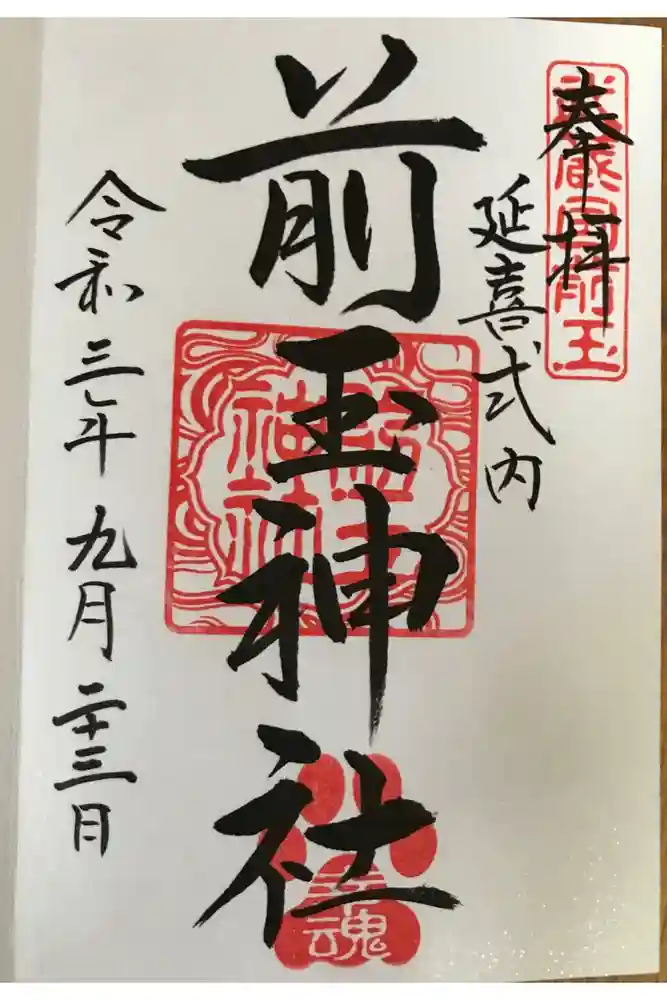 奉拝
武蔵国前玉
延喜式内
前玉神社
前玉
神社
幸魂
令和三年九月二十三日